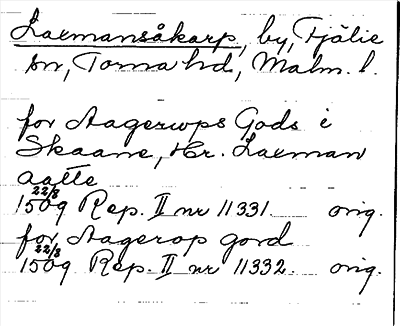 Laxmansåkarp, by, Fjälie
sn, Torna hd, Malm. l.
for Aagerups Gods i
Skaane, Hr. Laxman
aatte
22/3
1509 Rep. II nr 11331. orig.
for Aagerop gord
22/3
1509 Rep. II nr 11332. orig.